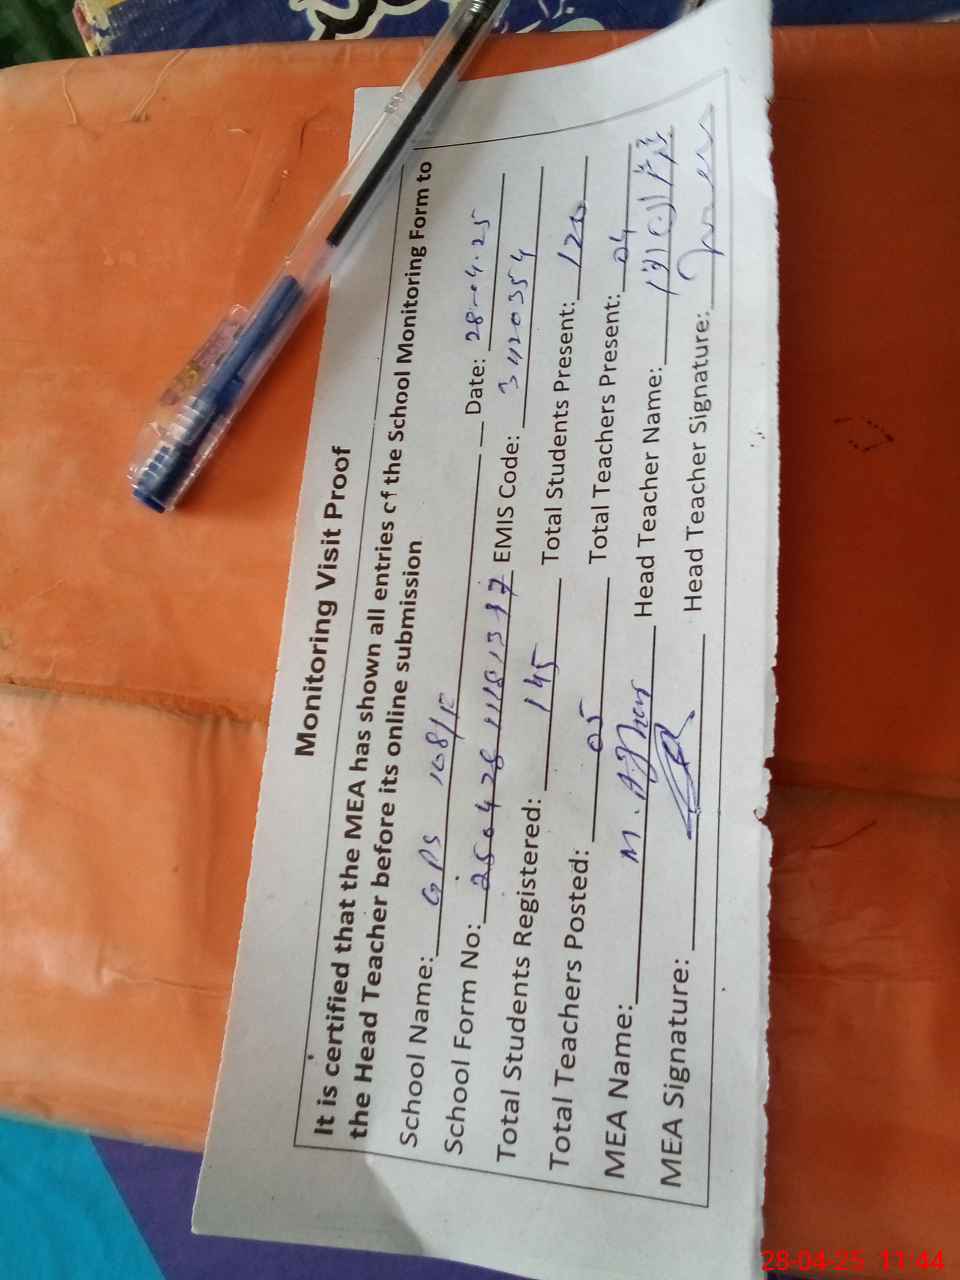 Monitoring Visit Proof
It is certified that the MEA has shown all entries of the School Monitoring Form to
the Head Teacher before its online submission
School Name: GPS 108/ Date: 28-04-25
School Form No: EMIS Code: 3420354
Total Students Registered: 145 Total Students Present: 120
Total Teachers Posted: 05 Total Teachers Present: 04
MEA Name: M. Head Teacher Name:
MEA Signature: Head Teacher Signature:
28-04-25 11:44